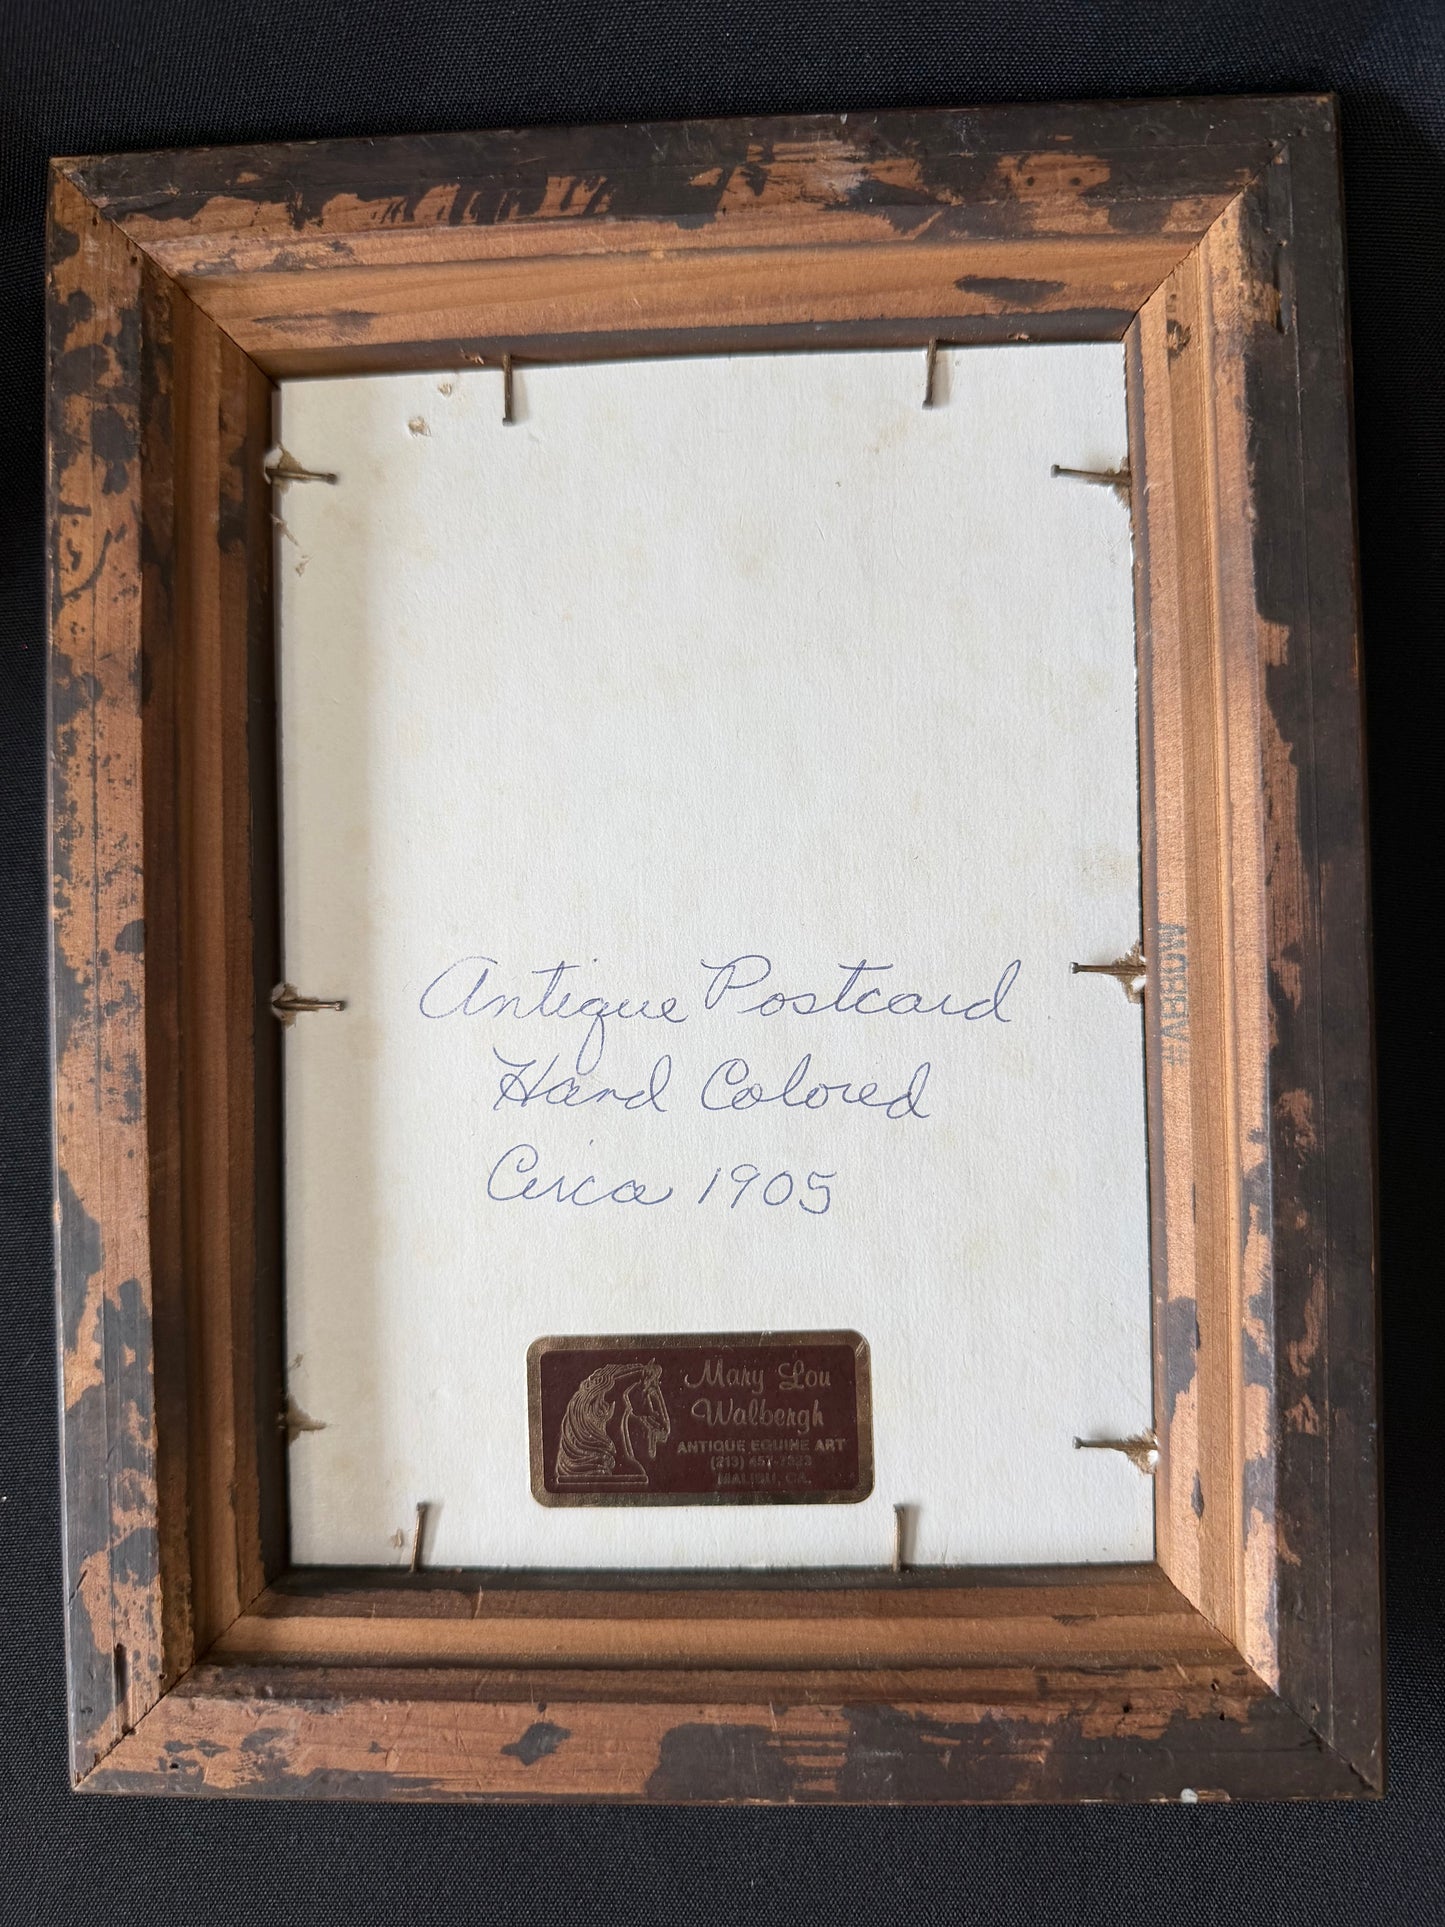 Antique Postcard
Hand Colored
Circa 1905
Mary Lou
Walbergh
ANTIQUE EQUINE ART
(213)
MALIBU, CA.
#ARROW